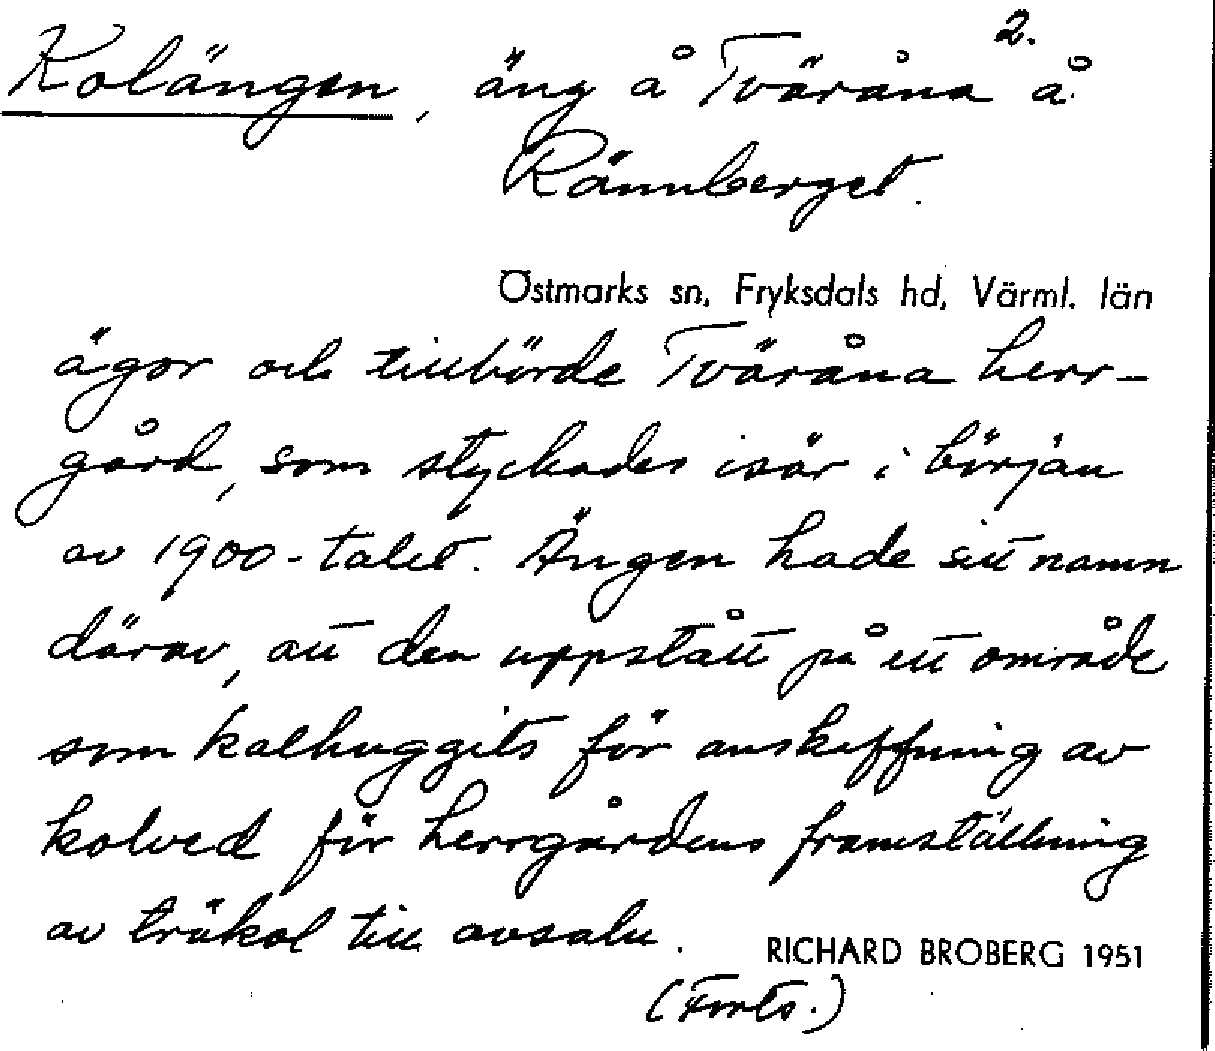 2.
Kolängen, äng å Tväråna å
Rännberget.
Östmarks sn, Fryksdals hd, Värml. län
ägor och tillhörde Tväråna herr-
gård, som styckades isär i början
av 1900-talet. Ängen hade sitt namn
därav, att den uppstått på ett område
som kalhuggits för anskaffning av
kolved för herrgårdens framställning
av träkol till avsalu.
RICHARD BROBERG 1951
(Forts.)